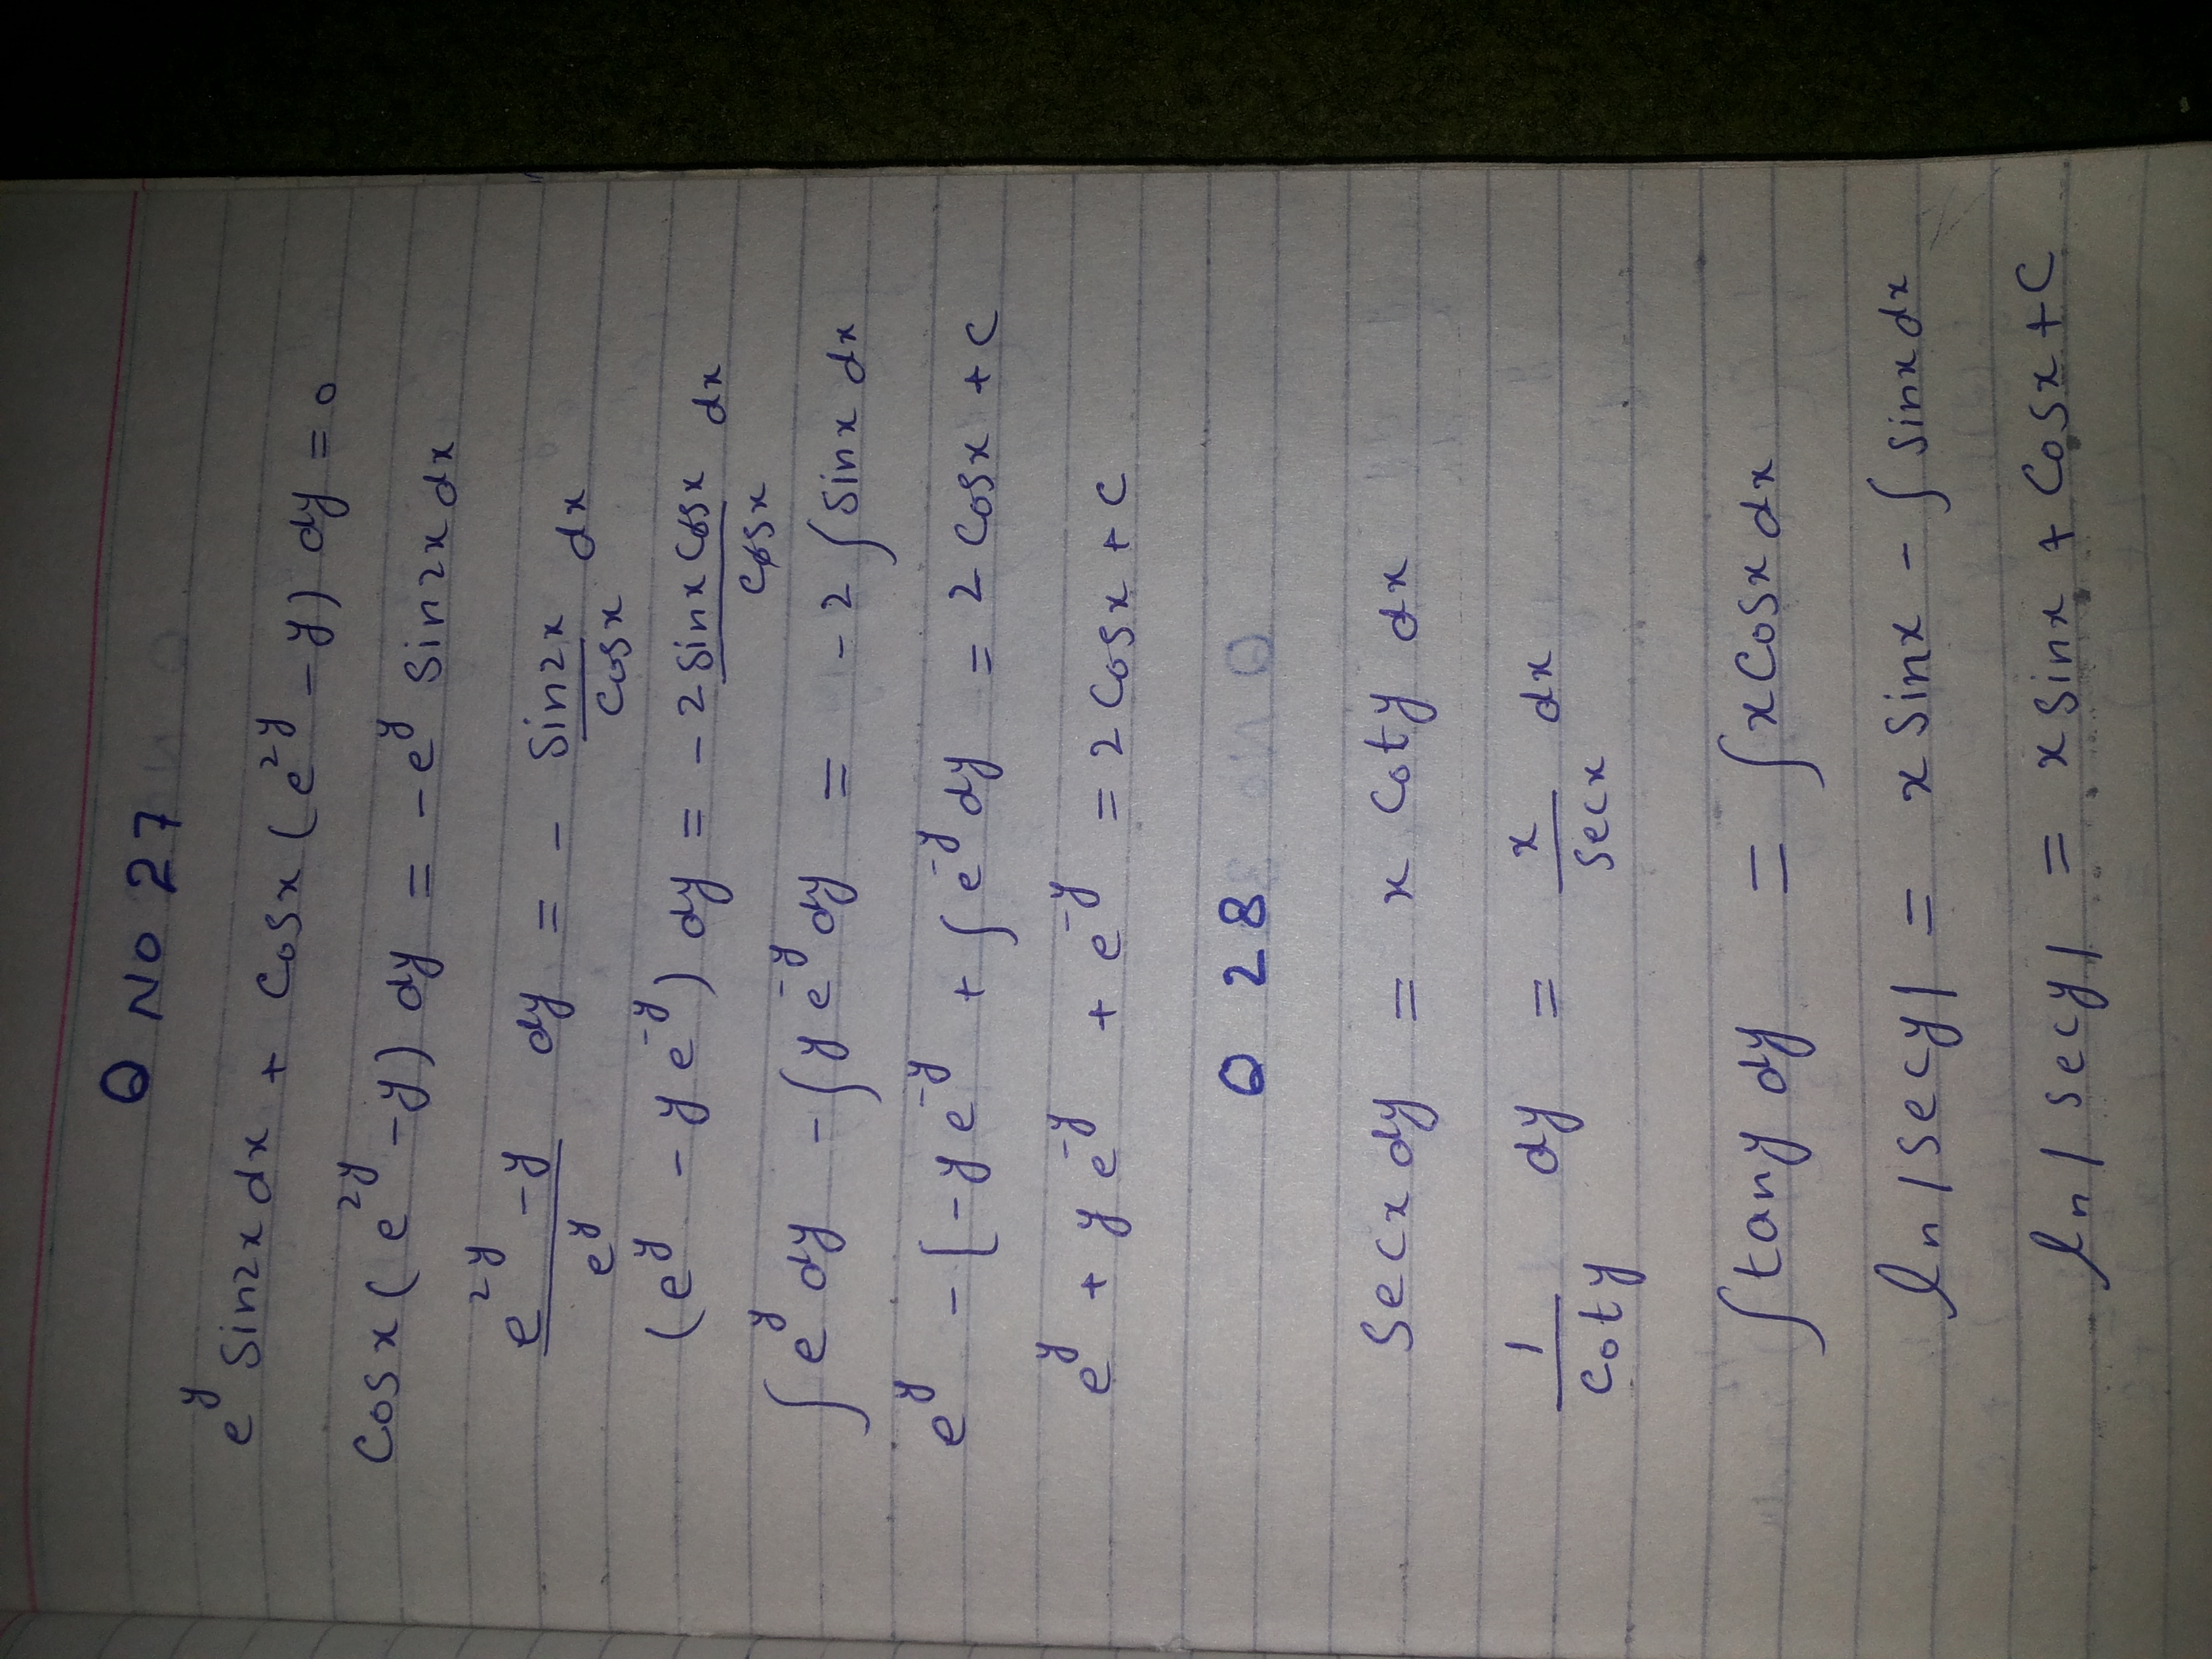 Q No 27
e^y Sin2x dx + Cosx (e^2y - y) dy = 0
Cosx (e^2y - y) dy = -e^y Sin2x dx
(e^2y - y)/e^y dy = - Sin2x/Cosx dx
(e^y - y e^-y) dy = - 2 Sinx Cosx/Cosx dx
∫ e^y dy - ∫ y e^-y dy = - 2 ∫ Sinx dx
e^y - [-y e^-y + ∫ e^-y dy = 2 Cosx + C
e^y + y e^-y + e^-y = 2 Cosx + C
Q 28
Secx dy = x Coty dx
1/Coty dy = x/Secx dx
∫ tany dy = ∫ x Cosx dx
ln |Secy| = x Sinx - ∫ Sinx dx
ln | Secy| = x Sinx + Cosx + C